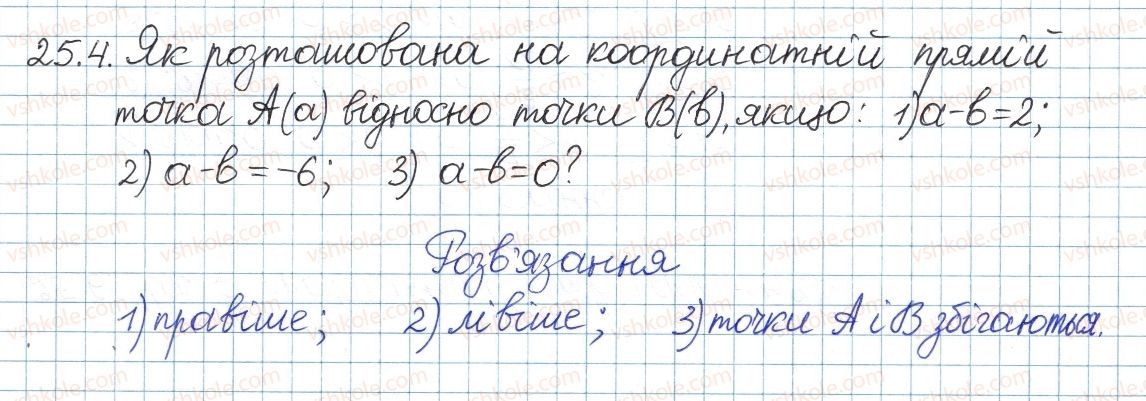 25.4. Як розташована на координатній прямій
точка A(a) відносно точки B(b), якщо: 1) a-b=2;
2) a-b=-6; 3) a-b=0?
Розв'язання
1) правіше; 2) лівіше; 3) точки A і B збігаються.